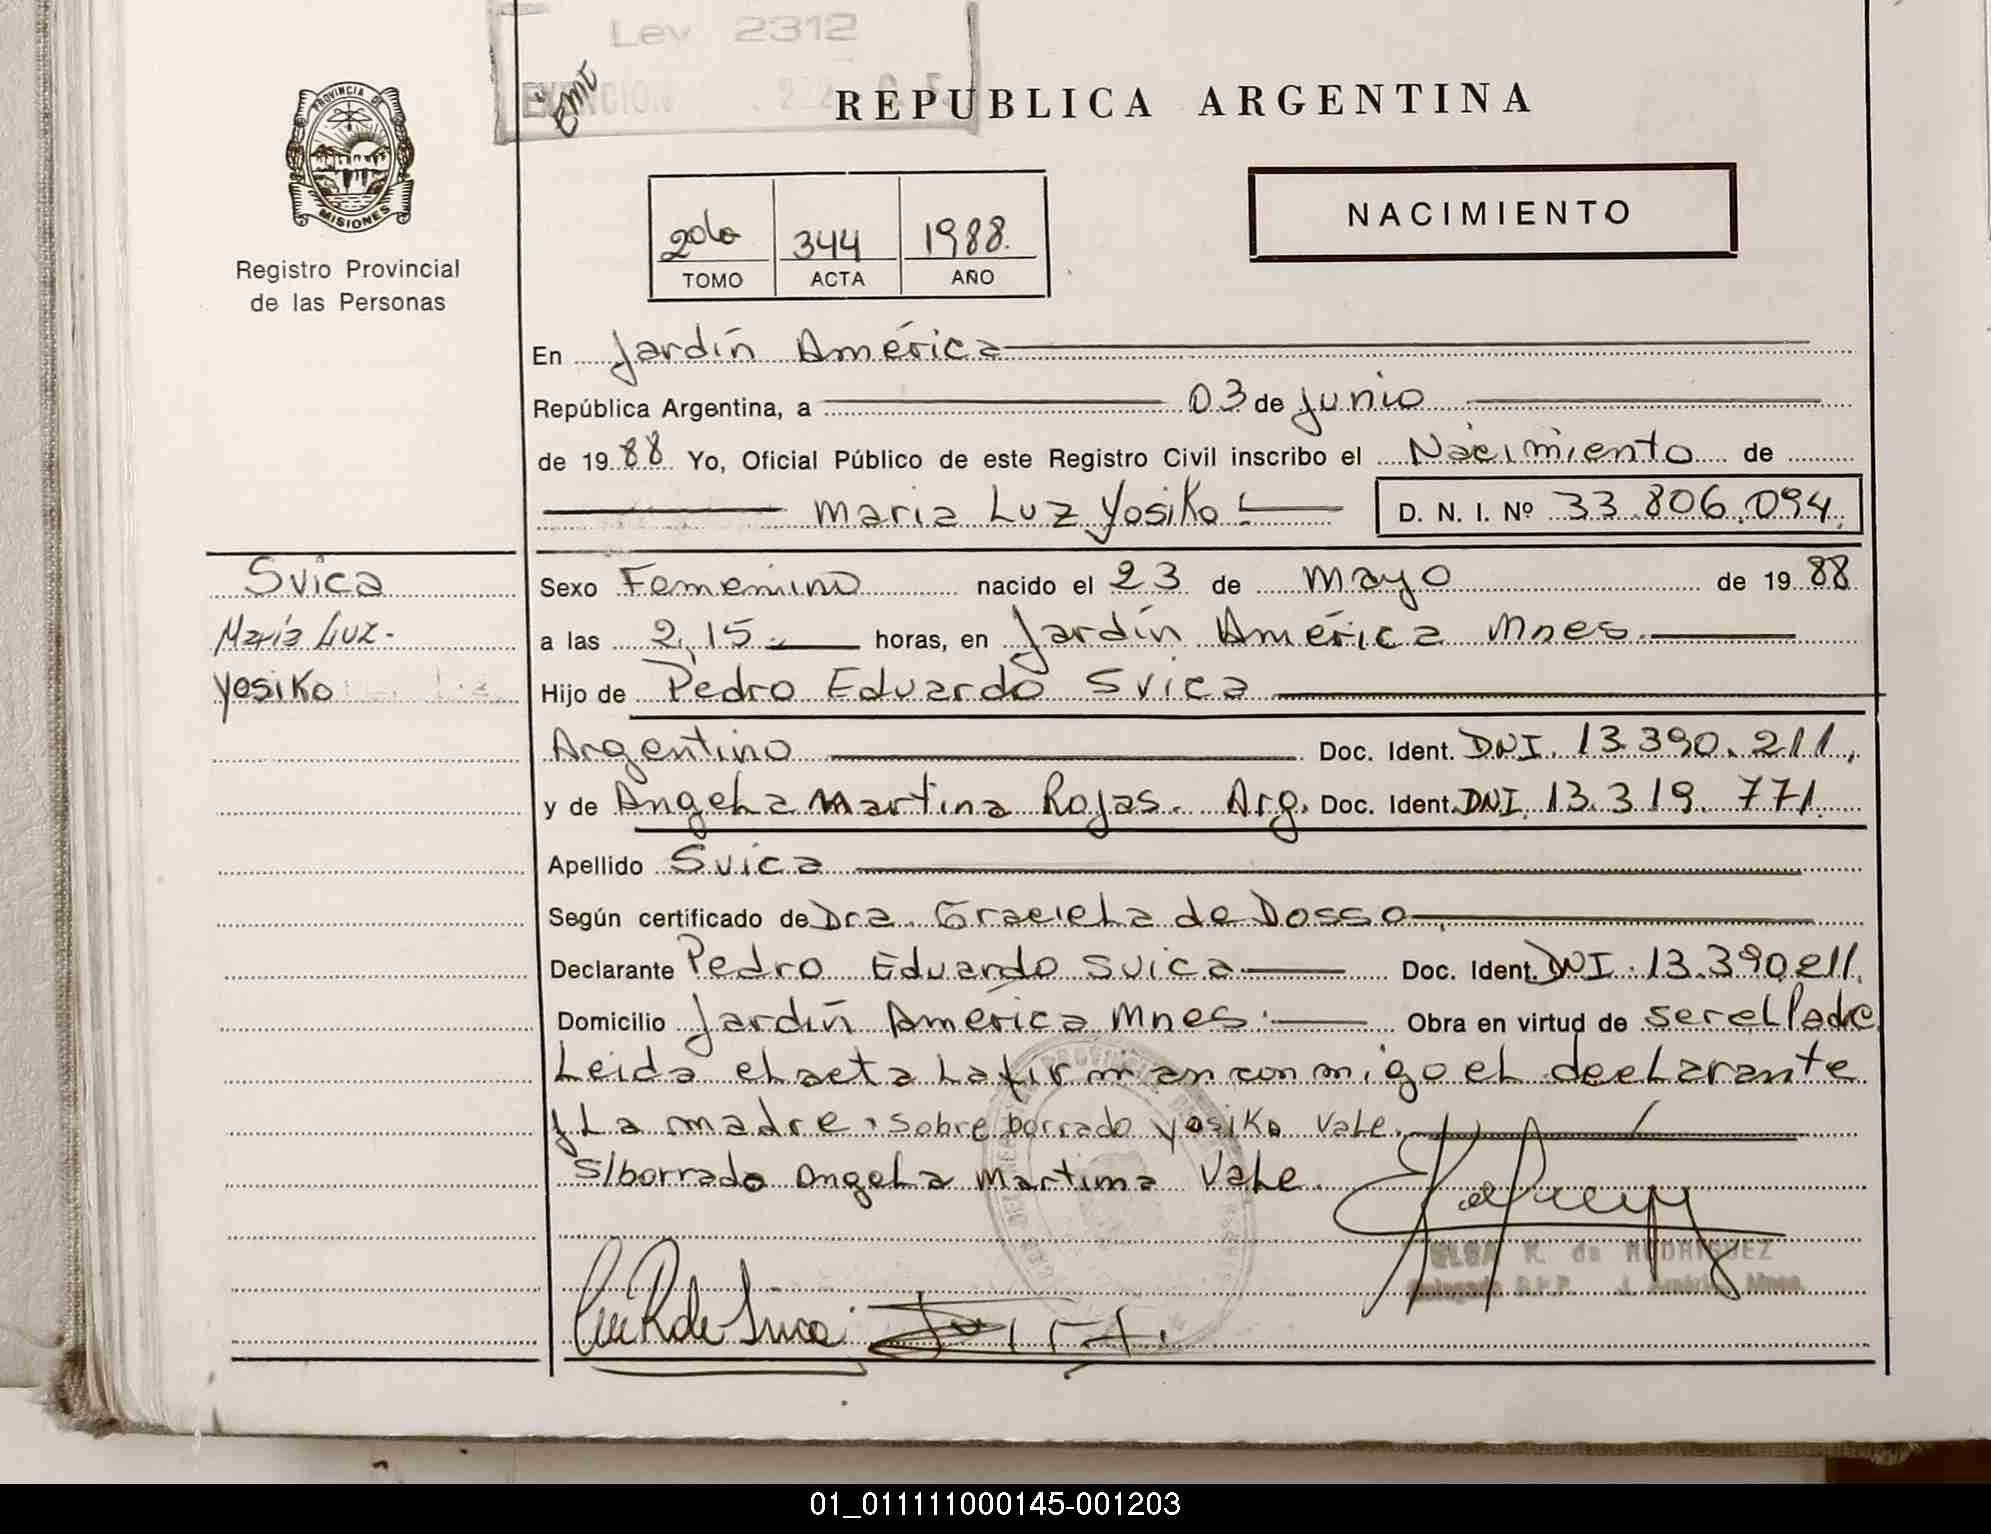 Ley 2312
REPUBLICA ARGENTINA
PROVINCIA DE
MISIONES
Registro Provincial
de las Personas
NACIMIENTO
2do 344 1988.
TOMO ACTA AÑO
En Jardín América
República Argentina, a 03 de junio
de 1988 Yo, Oficial Público de este Registro Civil inscribo el Nacimiento de
Maria Luz Yosiko.- D. N. I. Nº 33.806.094.
Svica
María Luz.-
Yosiko
Sexo Femenino nacido el 23 de Mayo de 1988
a las 2,15.- horas, en Jardín América Mnes.
Hijo de Pedro Eduardo Svica
Argentino Doc. Ident. DNI. 13.390.211,
y de Angela Martina Rojas. Arg. Doc. Ident. DNI. 13.319.771.
Apellido Svica
Según certificado de Dra. Graciela de Dosso
Declarante Pedro Eduardo Svica Doc. Ident. DNI. 13.390.211.
Domicilio Jardín América Mnes. Obra en virtud de ser el Padre
Leida el acta la firman conmigo el declarante
y La madre. Sobre borrado Yosiko vale.
S/borrado Angela Martina Vale.
OLGA K. de RODRIGUEZ
01_011111000145-001203